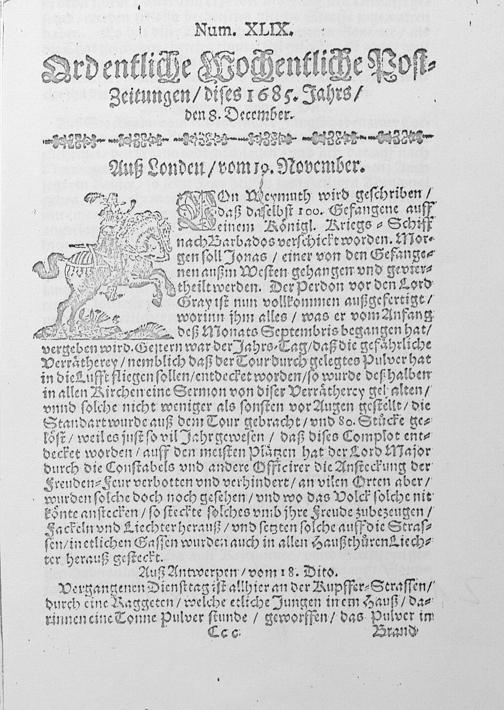 Num. XLIX.
Ordentliche Wochentliche Post-
Zeitungen / dises 1685. Jahrs /
den 8. December.
Auß Londen / vom 19. November.
VOn Weymuth wird geschriben /
daß daselbst 100. Gefangene auff
einem Königl. Kriegs-Schiff
nach Barbados verschickt worden. Mor-
gen soll Jonas / einer von den Gefange-
nen außm Westen gehangen und gevier-
theilt werden. Der Perdon vor den Lord
Gray ist nun vollkommen außgefertigt /
worinn jhm alles / was er vom Anfang
deß Monats Septembris begangen hat /
vergeben wird. Gestern war der Jahrs-Tag / daß die gefährliche
Verrätherey / nemblich daß der Tour durch gelegtes Pulver hat
in die Lufft fliegen sollen / entdecket worden / so wurde deßhalben
in allen Kirchen eine Sermon von diser Verrätherey gehalten /
vnnd solche nicht weniger als sonsten vor Augen gestellt / die
Standart wurde auß dem Tour gebracht / und 80. Stücke ge-
löst / weil es just so vil Jahr gewesen / daß dises Complot ent-
decket worden / auff den meisten Plätzen hat der Lord Major
durch die Constabels vnd andere Officirer die Ansteckung der
Freuden-Feur verbotten vnd verhindert / an vilen Orten aber /
wurden solche doch noch gesehen / vnd wo das Volck solche nit
könte anstecken / so steckte solches vmb jhre Freude zubezeugen /
Fackeln vnd Liechter herauß / vnd setzten solche auff die Stras-
sen / in etlichen Gassen wurden auch in allen Haußthüren Liech-
ter herauß gesteckt.
Auß Antwerpen / vom 18. Dito.
Vergangenen Diensttag ist allhier an der Kupffer-Strassen /
durch eine Raggeten / welche etliche Jungen in ein Hauß / da-
rinnen eine Tonne Pulver stunde / geworffen / das Pulver in
Ccc
Brand